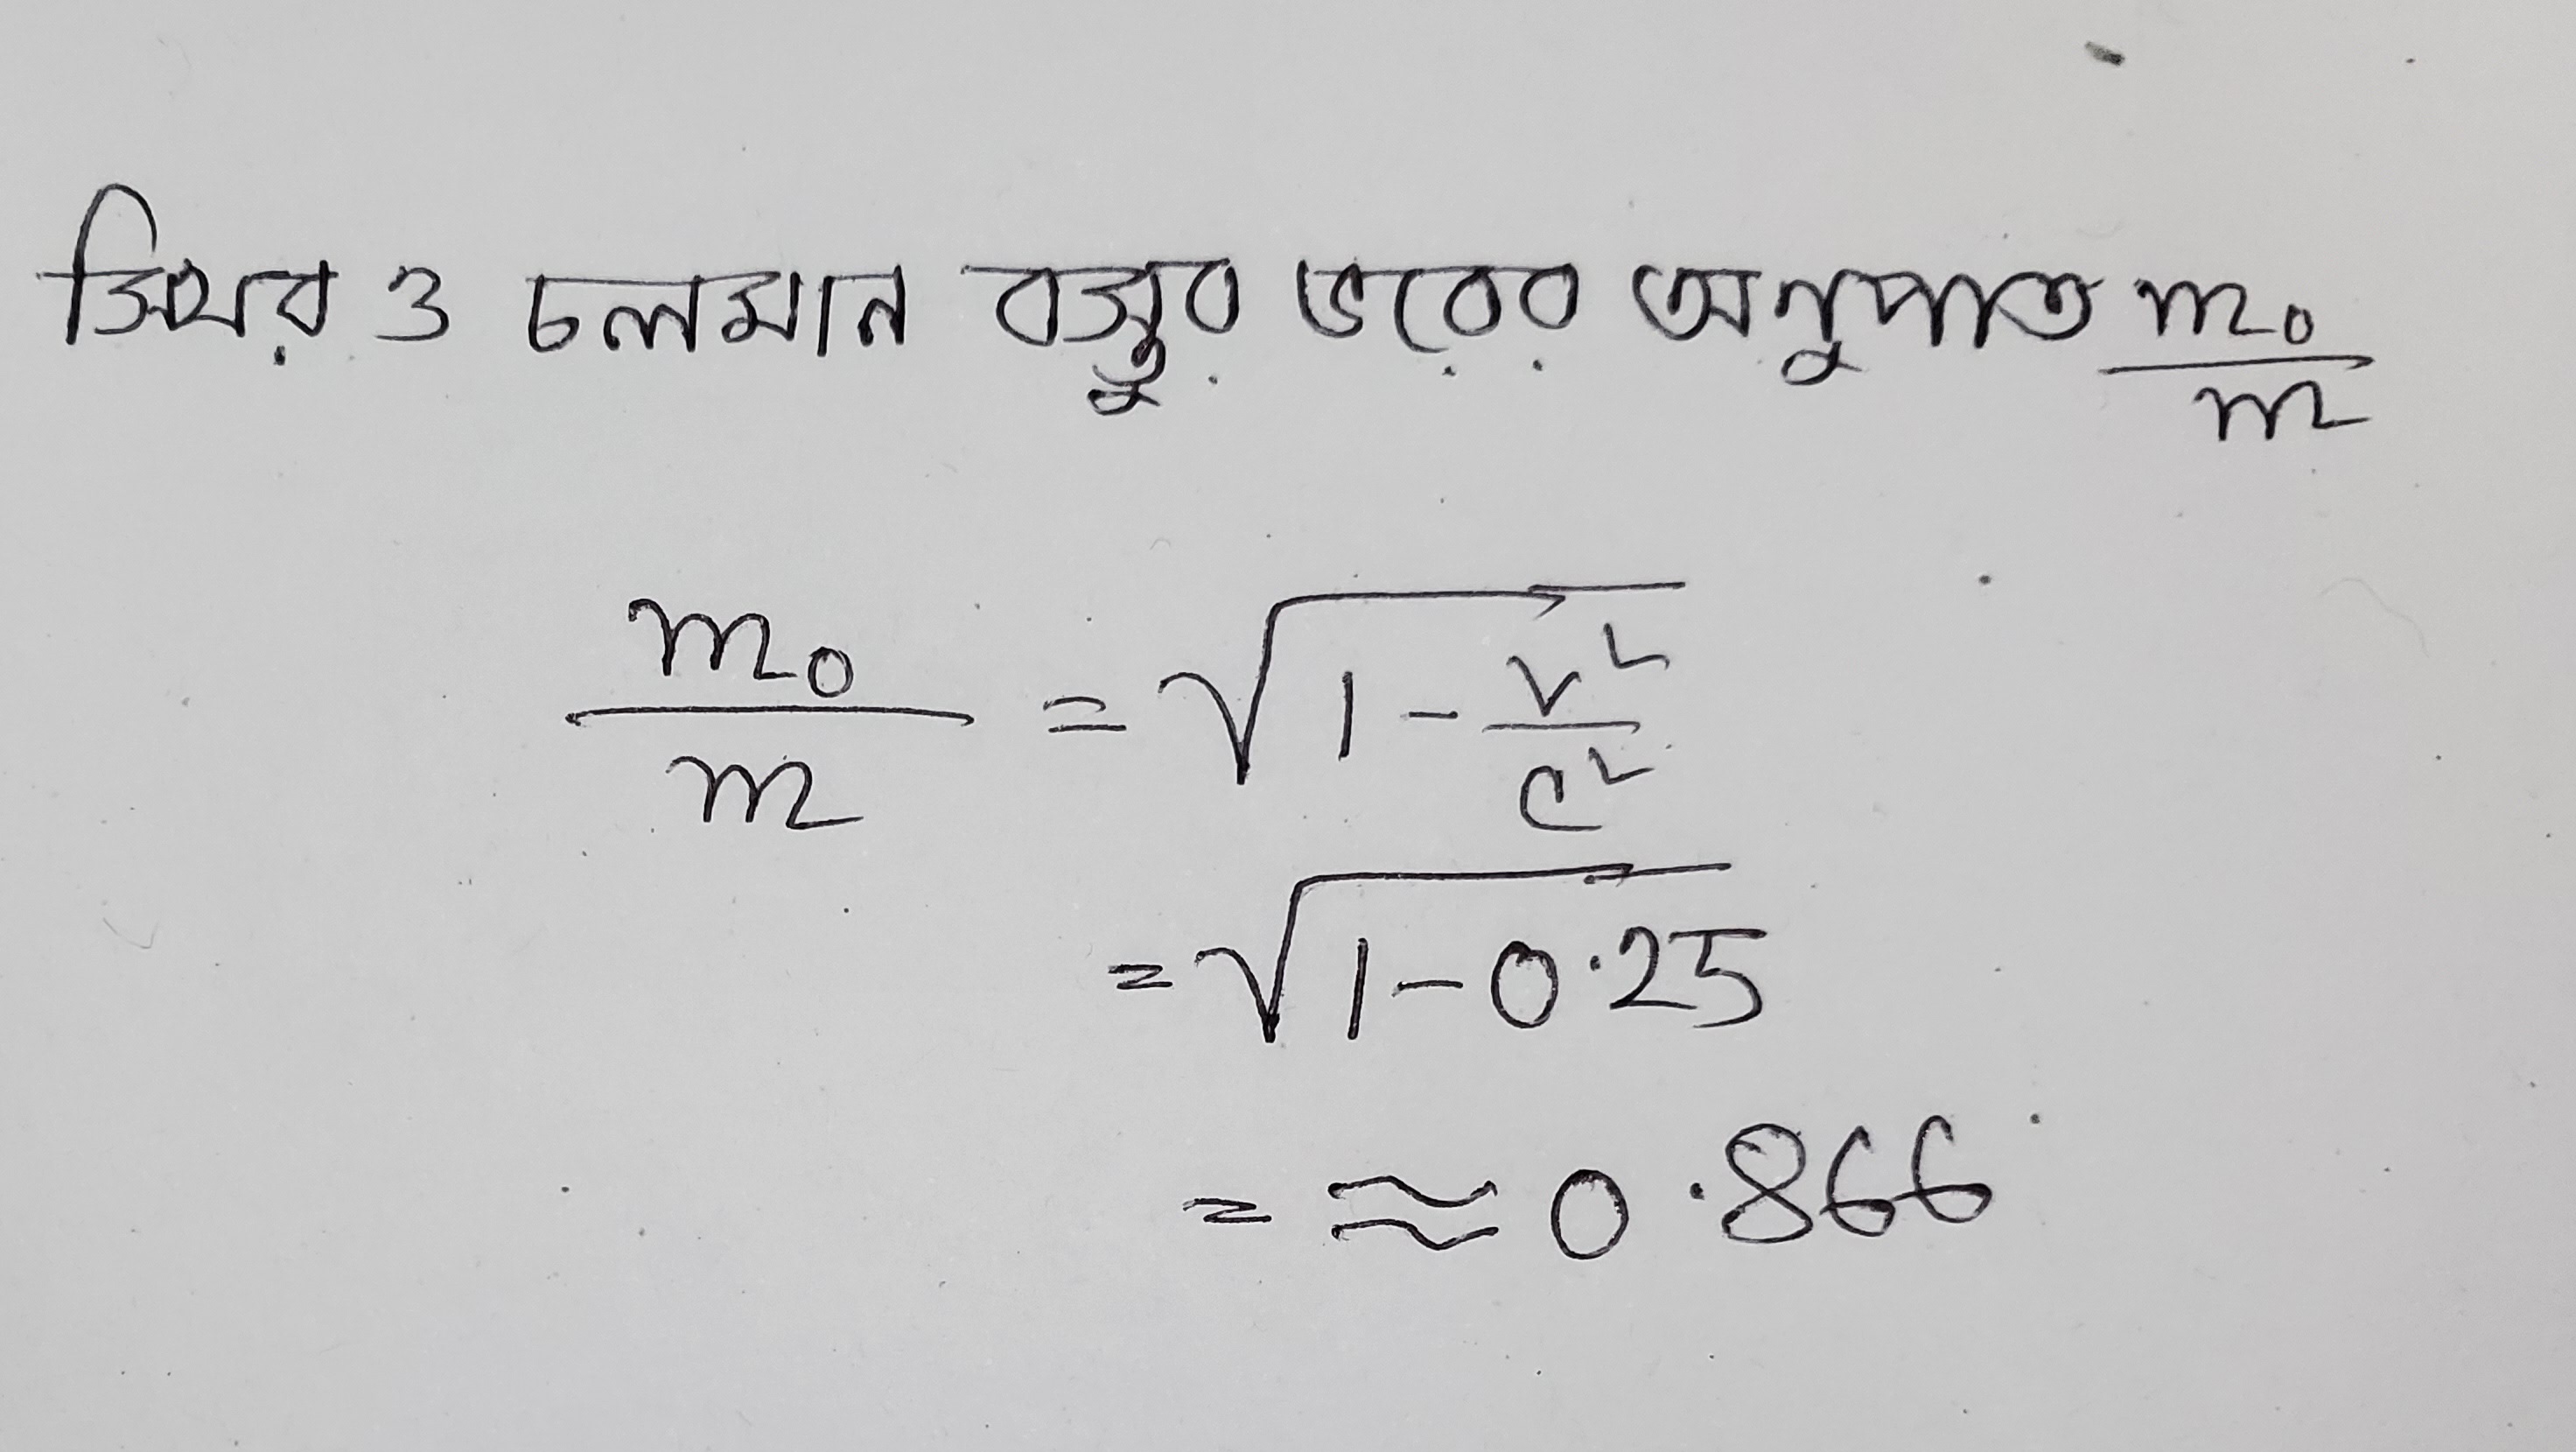 স্থির ও চলমান বস্তুর ভরের অনুপাত m₀/m
m₀/m = √(1 - v²/c²)
= √(1 - 0.25)
= ≈ 0.866